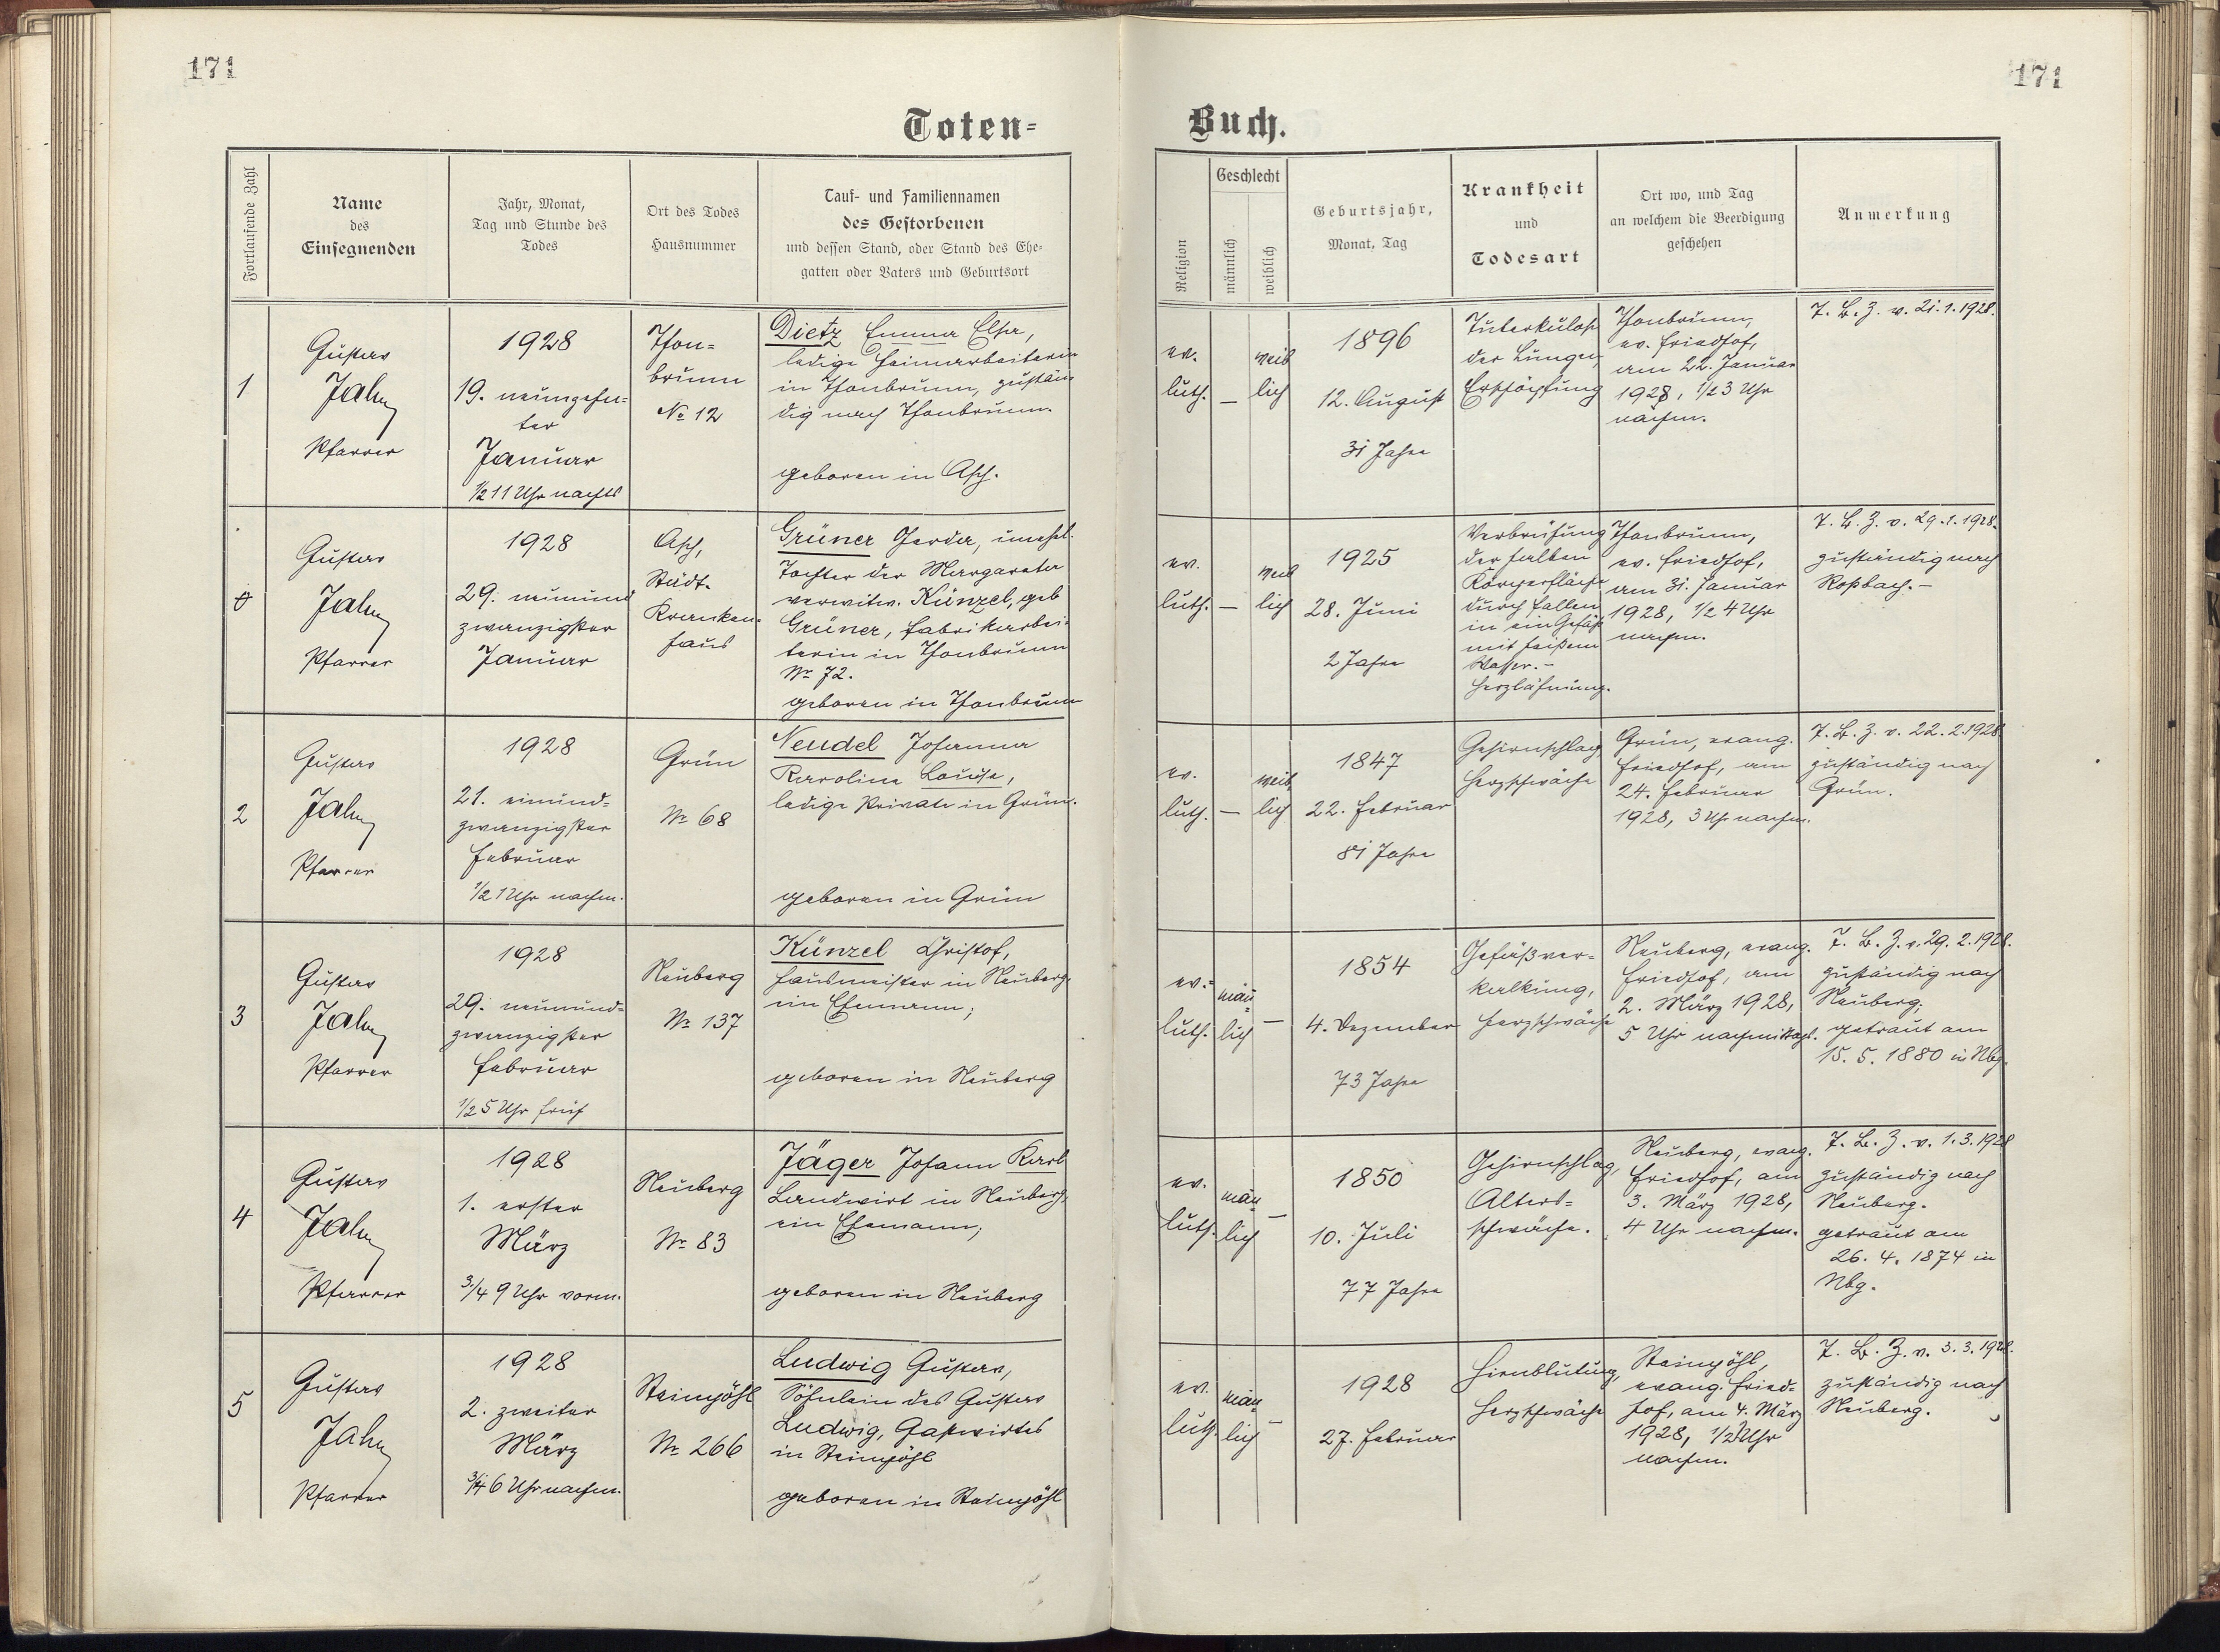 171
171
Toten-
Buch.
Fortlaufende Zahl
Name
des
Einsegnenden
Jahr, Monat,
Tag und Stunde des
Todes
Ort des Todes
Hausnummer
Tauf- und Familiennamen
des Gestorbenen
und dessen Stand, oder Stand des Ehe-
gatten oder Vaters und Geburtsort
Religion
Geschlecht
männlich
weiblich
Geburtsjahr,
Monat, Tag
Krankheit
und
Todesart
Ort wo, und Tag
an welchem die Beerdigung
geschehen
Anmerkung
1
Gustav
Jahn
Pfarrer
1928
19. neunzehn-
ter
Januar
1/2 11 Uhr nachts
Thon-
brunn
No 12
Dietz Emma Elsa,
ledige Heimarbeiterin
in Thonbrunn, zustän
dig nach Thonbrunn.
geboren in Asch.
ev.
luth.
—
weib
lich
1896
12. August
31 Jahre
Tuberkulose
der Lungen,
Erschöpfung
Thonbrunn,
ev. Friedhof,
am 22. Januar
1928, 1/2 3 Uhr
nachm.
T. B. Z. v. 21.1.1928.
0
Gustav
Jahn
Pfarrer
1928
29. neunund
zwanzigster
Januar
Asch,
Städt.
Kranken-
haus
Grüner Gerda, unehel.
Tochter der Margareta
verwitw. Künzel, geb
Grüner, Fabrikarbei-
terin in Thonbrunn
No 72.
geboren in Thonbrunn
ev.
luth.
—
weib
lich
1925
28. Juni
2 Jahre
Verbrühung
der halben
Körperfläche
durch Fallen
in ein Gefäß
mit heißem
Wasser. -
Herzlähmung.
Thonbrunn,
ev. Friedhof,
am 31. Januar
1928, 1/2 4 Uhr
nachm.
T. B. Z. v. 29.1.1928.
zuständig nach
Roßbach. -
2
Gustav
Jahn
Pfarrer
1928
21. einund-
zwanzigster
Februar
1/2 1 Uhr nachm.
Grün
No 68
Neudel Johanna
Karolina Louise,
ledige Private in Grün.
geboren in Grün
ev.
luth.
—
weib
lich
1847
22. Februar
81 Jahre
Gehirnschlag,
Herzschwäche
Grün, evang.
Friedhof, am
24. Februar
1928, 3 Uhr nachm.
T. B. Z. v. 22.2.1928
zuständig nach
Grün.
3
Gustav
Jahn
Pfarrer
1928
29. neunund-
zwanzigster
Februar
1/2 5 Uhr früh
Neuberg
No 137
Künzel Christof,
Hausmeister in Neuberg,
ein Ehemann;
geboren in Neuberg
ev.-
luth.
män-
lich
—
1854
4. Dezember
73 Jahre
Gefäßver-
kalkung,
Herzschwäche
Neuberg, evang.
Friedhof, am
2. März 1928,
5 Uhr nachmittags.
T. B. Z. v. 29.2.1928.
zuständig nach
Neuberg,
getraut am
15. 5. 1880 in Nbg.
4
Gustav
Jahn
Pfarrer
1928
1. erster
März
3/4 9 Uhr vorm.
Neuberg
No 83
Jäger Johann Karl
Landwirt in Neuberg,
ein Ehemann;
geboren in Neuberg
ev.
luth.
män-
lich
—
1850
10. Juli
77 Jahre
Gehirnschlag,
Alters-
schwäche.
Neuberg, evang.
Friedhof, am
3. März 1928,
4 Uhr nachm.
T. B. Z. v. 1.3.1928
zuständig nach
Neuberg.
getraut am
26. 4. 1874 in
Nbg.
5
Gustav
Jahn
Pfarrer
1928
2. zweiter
März
3/4 6 Uhr nachm.
Steinpöhl
No 266
Ludwig Gustav,
Söhnlein des Gustav
Ludwig, Gastwirtes
in Steinpöhl
geboren in Steinpöhl
ev.
luth.
män
lich
—
1928
27. Februar
Hirnblutung,
Herzschwäche
Steinpöhl,
evang. Fried-
hof, am 4. März
1928, Uhr
nachm.
T. B. Z. v. 3.3.1928.
zuständig nach
Neuberg.